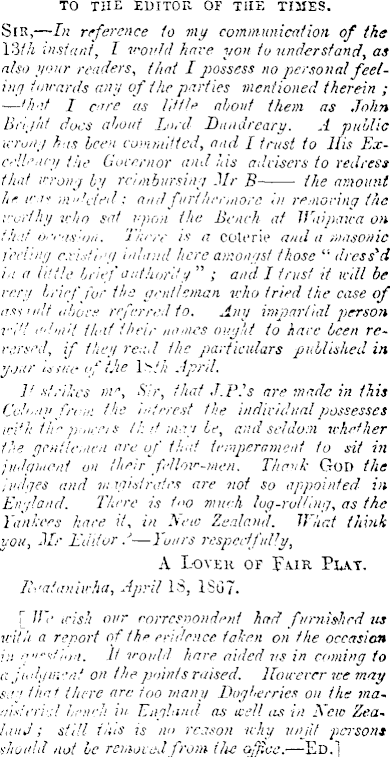 TO THE EDITOR OF THE TIMES.
SIR,—In reference to my communication of the
13th instant, I would have you to understand, as
also your readers, that I possess no personal feel-
ing towards any of the parties mentioned therein ;
—that I care as little about them as John
Bright does about Lord Dundreary. A public
wrong has been committed, and I trust to His Ex-
cellency the Governor and his advisers to redress
that wrong by reimbursing Mr B—— the amount
he was mulcted : and furthermore in removing the
worthy who sat upon the Bench at Waipawa on
that occasion. There is a coterie and a masonic
feeling existing inland here amongst those “ dress'd
in a little brief authority ” ; and I trust it will be
very brief for the gentleman who tried the case of
assault above referred to. Any impartial person
will admit that their names ought to have been re-
versed, if they read the particulars published in
your issue of the 15th April.
It strikes me, Sir, that J.P.'s are made in this
Colony from the interest the individual possesses
with the powers that may be, and seldom whether
the gentlemen are of that temperament to sit in
judgment on their fellow-men. Thank GOD the
judges and magistrates are not so appointed in
England. There is too much log-rolling, as the
Yankees have it, in New Zealand. What think
you, Mr Editor ?—Yours respectfully,
A LOVER OF FAIR PLAY.
Ruataniwha, April 18, 1867.
[ We wish our correspondent had furnished us
with a report of the evidence taken on the occasion
in question. It would have aided us in coming to
a judgment on the points raised. However we may
say that there are too many Dogberries on the ma-
gisterial bench in England as well as in New Zea-
land ; still this is no reason why unfit persons
should not be removed from the office.—ED.]